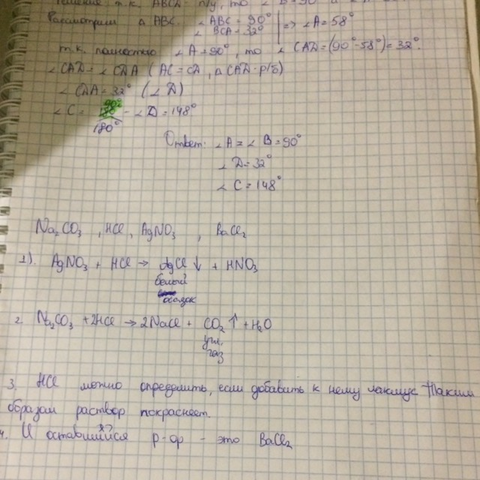 Решение т.к. ABCD - п/у, то ∠B = 90°
Рассмотрим △ABC. ∠ABC = 90° | => ∠A = 58°
∠BCA = 32°
т.к. полностью ∠A = 90°, то ∠CAD = (90°-58°) = 32°.
∠CAD = ∠CDA (AC = CD, △CAD - р/б)
∠CDA = 32° (∠D)
∠C = - ∠D = 148°
180°
Ответ: ∠A = ∠B = 90°
∠D = 32°
∠C = 148°
Na2CO3 , HCl , AgNO3 , BaCl2
1). AgNO3 + HCl → AgCl ↓ + HNO3
белый
осадок
2. Na2CO3 + 2HCl → 2NaCl + CO2 ↑ + H2O
угл.
газ
3. HCl можно определить, если добавить к нему лакмус. Таким
образом раствор покраснеет.
4. И оставшийся р-ор - это BaCl2